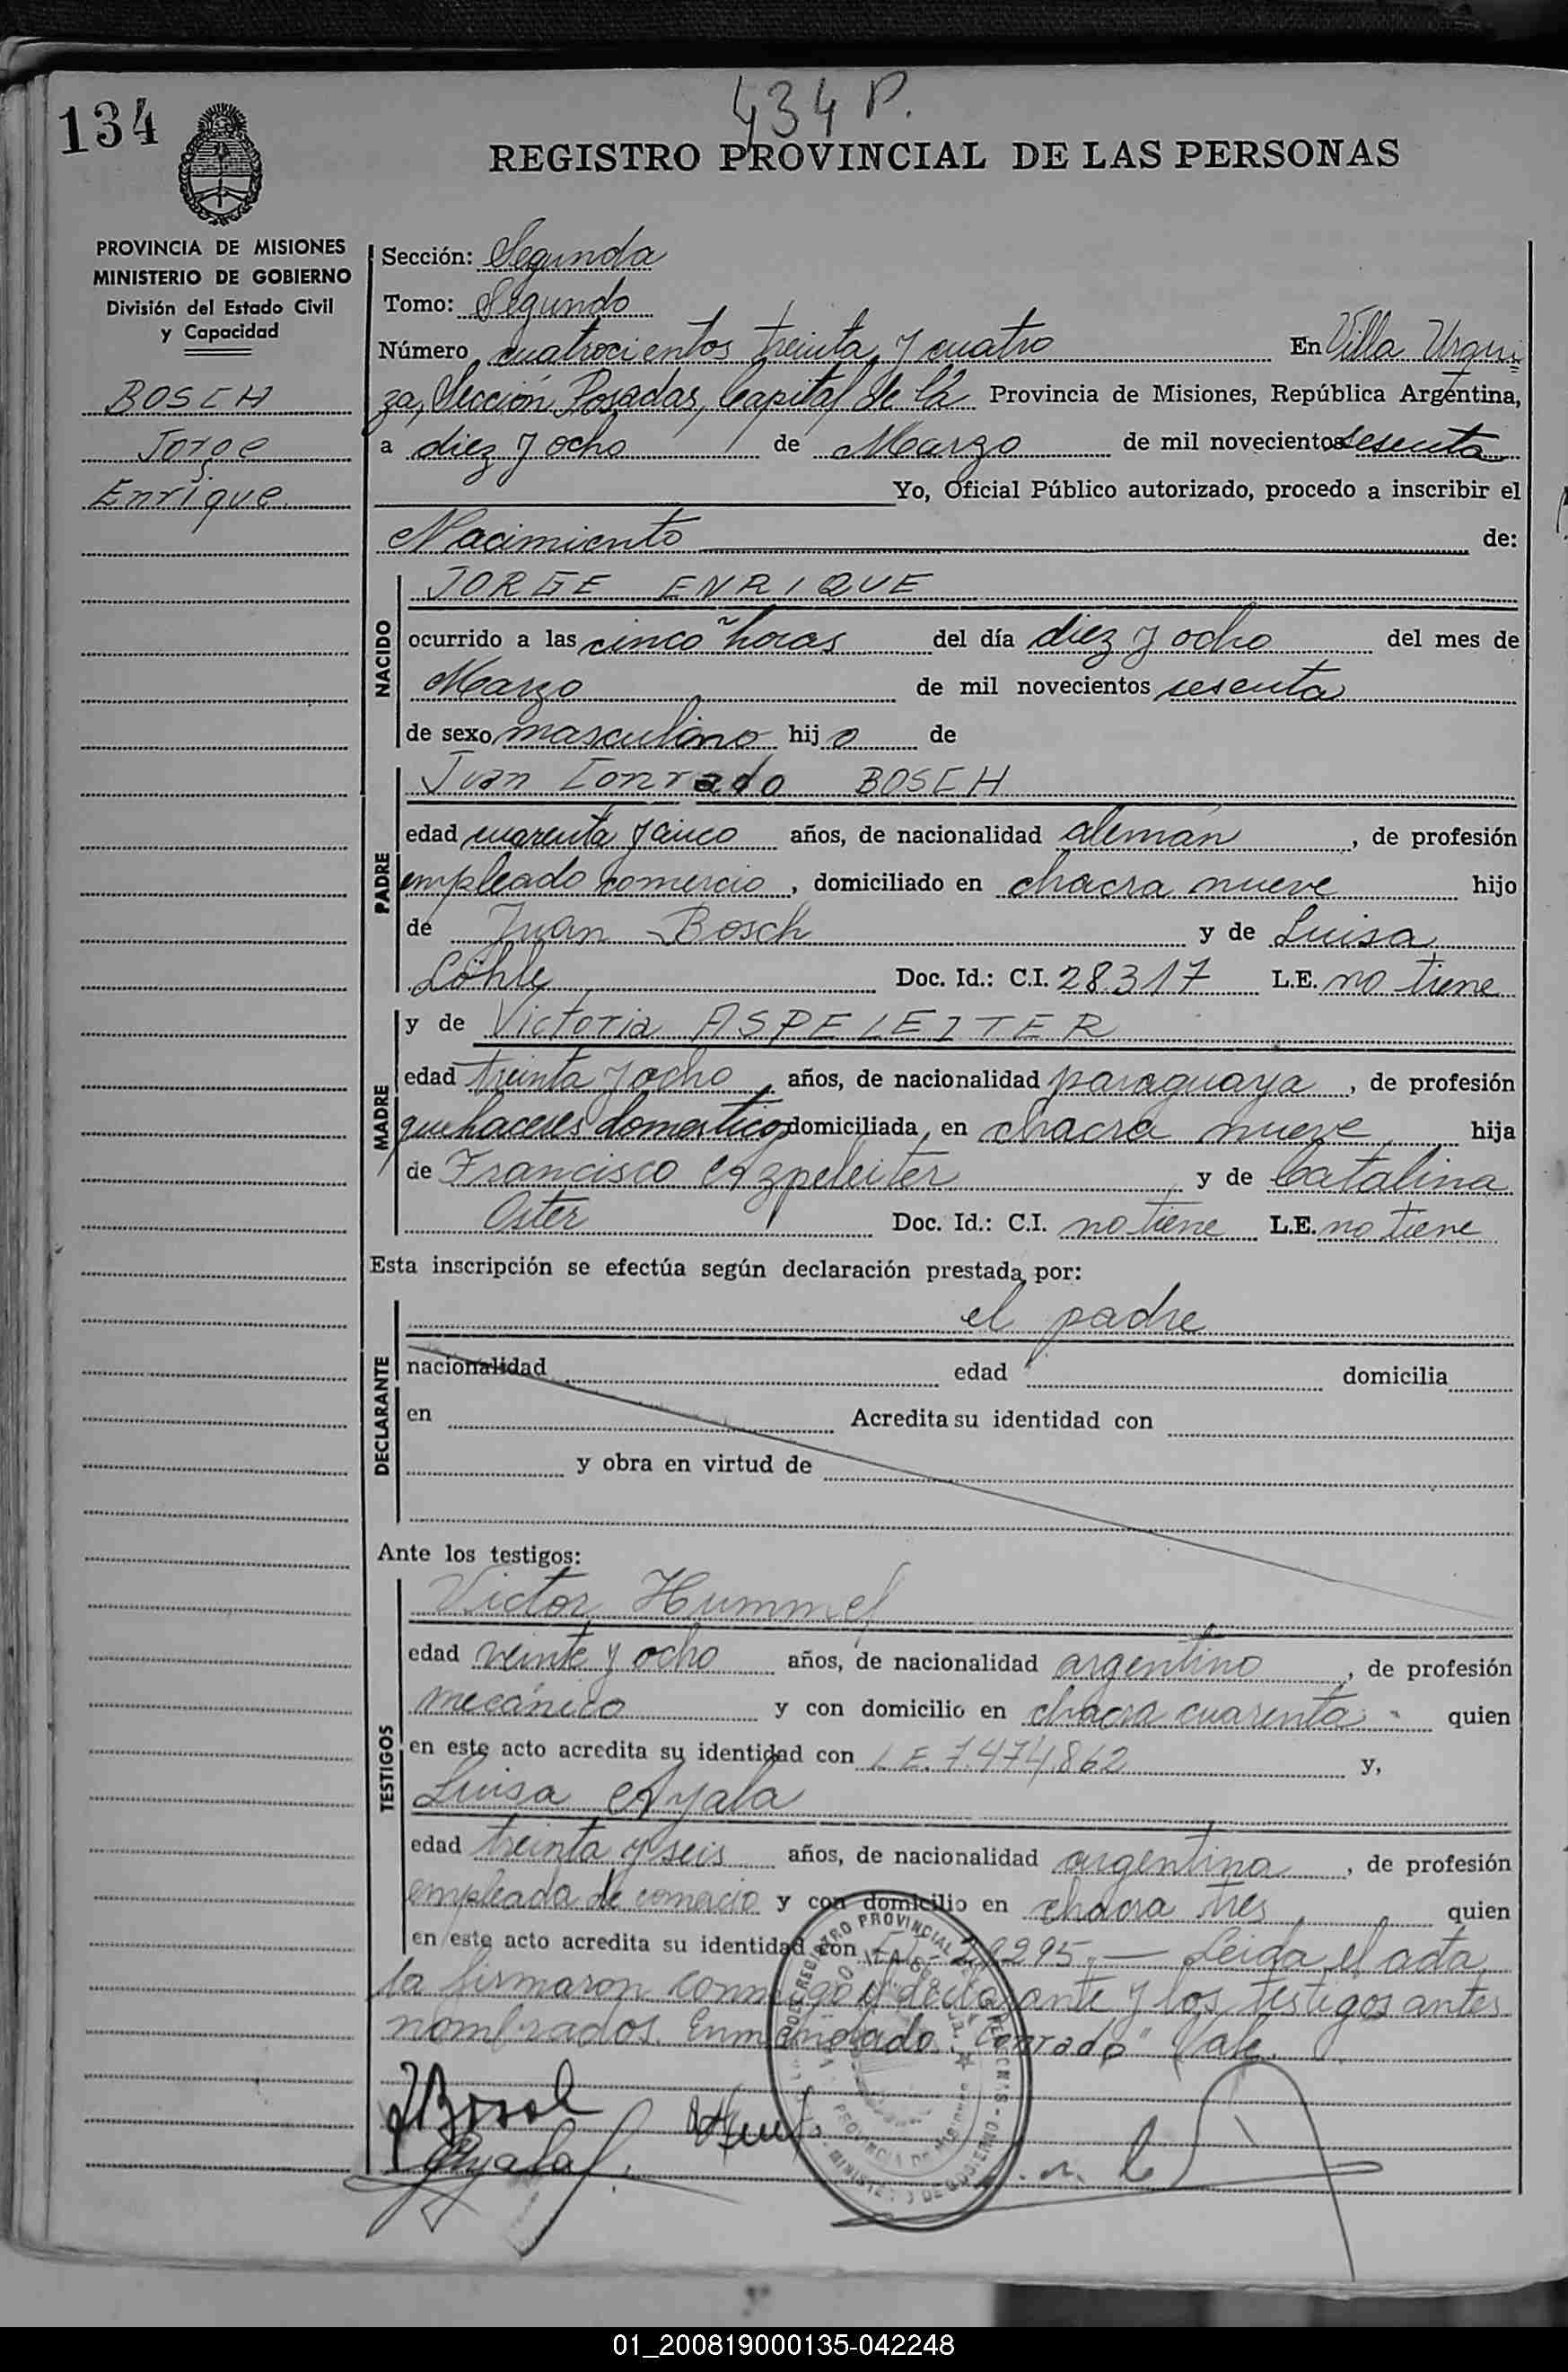 434 P.
134
REGISTRO PROVINCIAL DE LAS PERSONAS
PROVINCIA DE MISIONES
MINISTERIO DE GOBIERNO
División del Estado Civil
y Capacidad
BOSCH
Jorge
Enrique
Sección: Segunda
Tomo: Segundo
Número cuatrocientos treinta y cuatro En Villa Urqui=
za, Sección Posadas, Capital de la Provincia de Misiones, República Argentina,
a diez y ocho de Marzo de mil novecientos sesenta
Yo, Oficial Público autorizado, procedo a inscribir el
Nacimiento de:
NACIDO
JORGE ENRIQUE
ocurrido a las cinco horas del día diez y ocho del mes de
Marzo de mil novecientos sesenta
de sexo masculino hijo de
PADRE
Juan Conrado BOSCH
edad cuarenta y cinco años, de nacionalidad alemán, de profesión
empleado comercio, domiciliado en chacra nueve hijo
de Juan Bosch y de Luisa
Löhle Doc. Id.: C.I. 28.317 L.E. no tiene
MADRE
y de Victoria ASPELEITER
edad treinta y ocho años, de nacionalidad paraguaya, de profesión
quehaceres domesticos domiciliada en chacra nueve hija
de Francisco Azpeleiter y de Catalina
Oster Doc. Id.: C.I. no tiene L.E. no tiene
Esta inscripción se efectúa según declaración prestada por:
DECLARANTE
el padre
nacionalidad edad domicilia
en Acredita su identidad con
y obra en virtud de
Ante los testigos:
TESTIGOS
Victor Hummel
edad veinte y ocho años, de nacionalidad argentino, de profesión
mecánico y con domicilio en chacra cuarenta quien
en este acto acredita su identidad con L.E. 7.474.862 y,
Luisa Ayala
edad treinta y seis años, de nacionalidad argentina, de profesión
empleada de comercio y con domicilio en chacra tres quien
en este acto acredita su identidad con 29295.— Leida el acta
la firmaron conmigo el declarante y los testigos antes
nombrados. Enmendado: "Conrado" Vale.
JBosch
Ayala
01_200819000135-042248